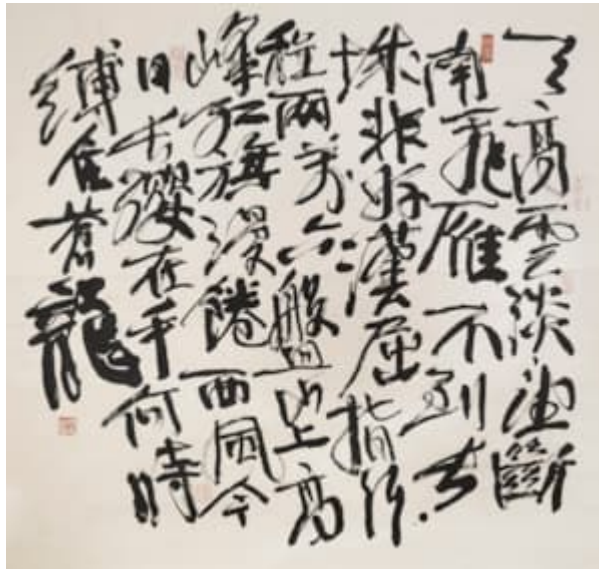 天高雲淡望斷
南飛雁不到长
城非好漢屈指行
程兩萬六盤山上高
峰红旗漫捲西風今
日长纓在手何時
縛住蒼龍